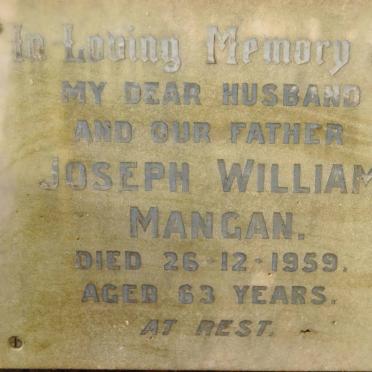 In Loving Memory
MY DEAR HUSBAND
AND OUR FATHER
JOSEPH WILLIAM
MANGAN.
DIED 26-12-1959.
AGED 63 YEARS.
AT REST.